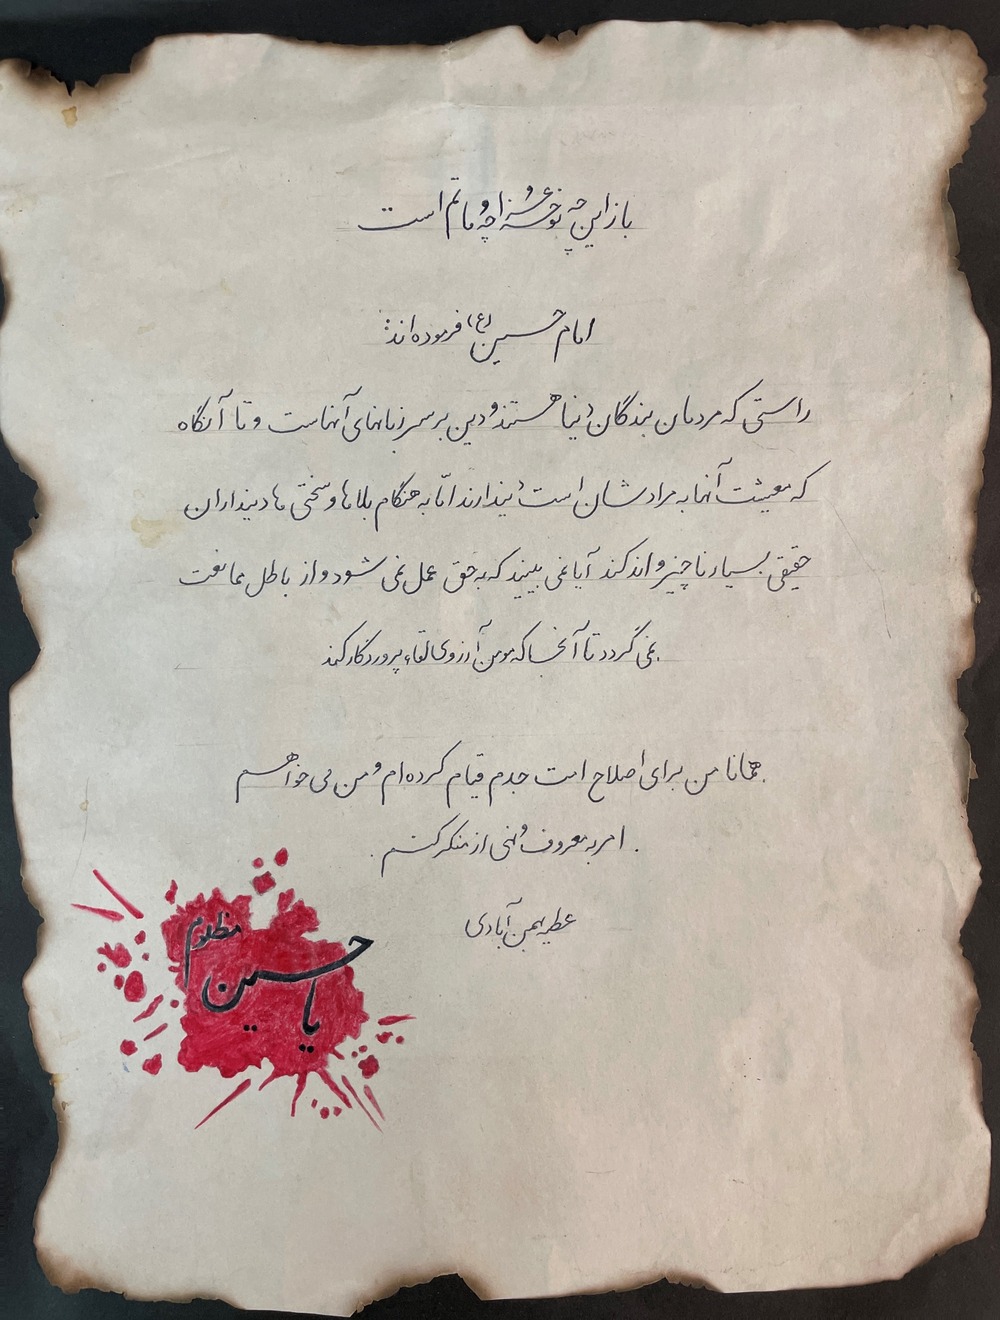 باز این چه نوحه و چه عزا و چه ماتم است
امام حسین (ع) فرموده اند:
راستی که مردمان بندگان دنیا هستند و دین بر سر زبانهای آنهاست و تا آنگاه
که معیشت آنها به مرادشان است دیندارند امّا به هنگام بلاها و سختی ها دینداران
حقیقی بسیار ناچیز و اندکند آیا نمی بینید که به حق عمل نمی شود و از باطل ممانعت
نمی گردد تا آنجا که مومن آرزوی لقاء پروردگار کند
همانا من برای اصلاح امت جدم قیام کرده ام و من می خواهم
امر به معروف و نهی از منکر کنم.
عطیه بهمن آبادی
یا حسین مظلوم